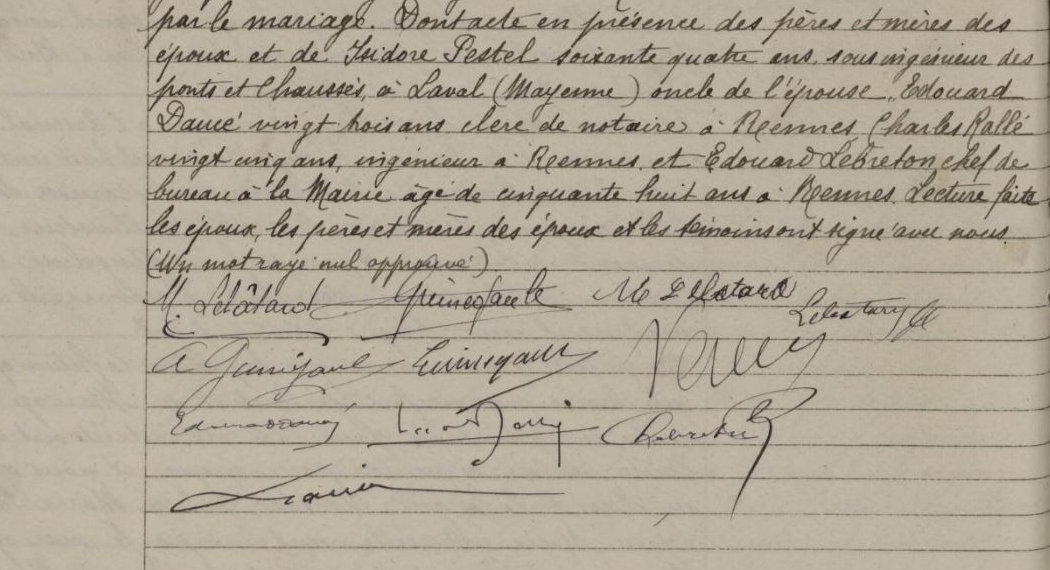 par le mariage. Dont acte en présence des pères et mères des
époux et de Isidore Pestel soixante quatre ans, sous ingénieur des
ponts et Chaussés, à Laval (Mayenne) oncle de l'épouse, Edouard
Daucé vingt trois ans clerc de notaire à Rennes Charles Rallé
vingt cinq ans, ingénieur à Rennes, et Edouard Lebreton chef de
bureau à la Mairie âgé de cinquante huit ans à Rennes. Lecture faite
les époux, les pères et mères des époux et les témoins ont signé avec nous.
(Un mot rayé nul approuvé)
M. Lebâtard M Lebatard
Lebatard
Lebreton